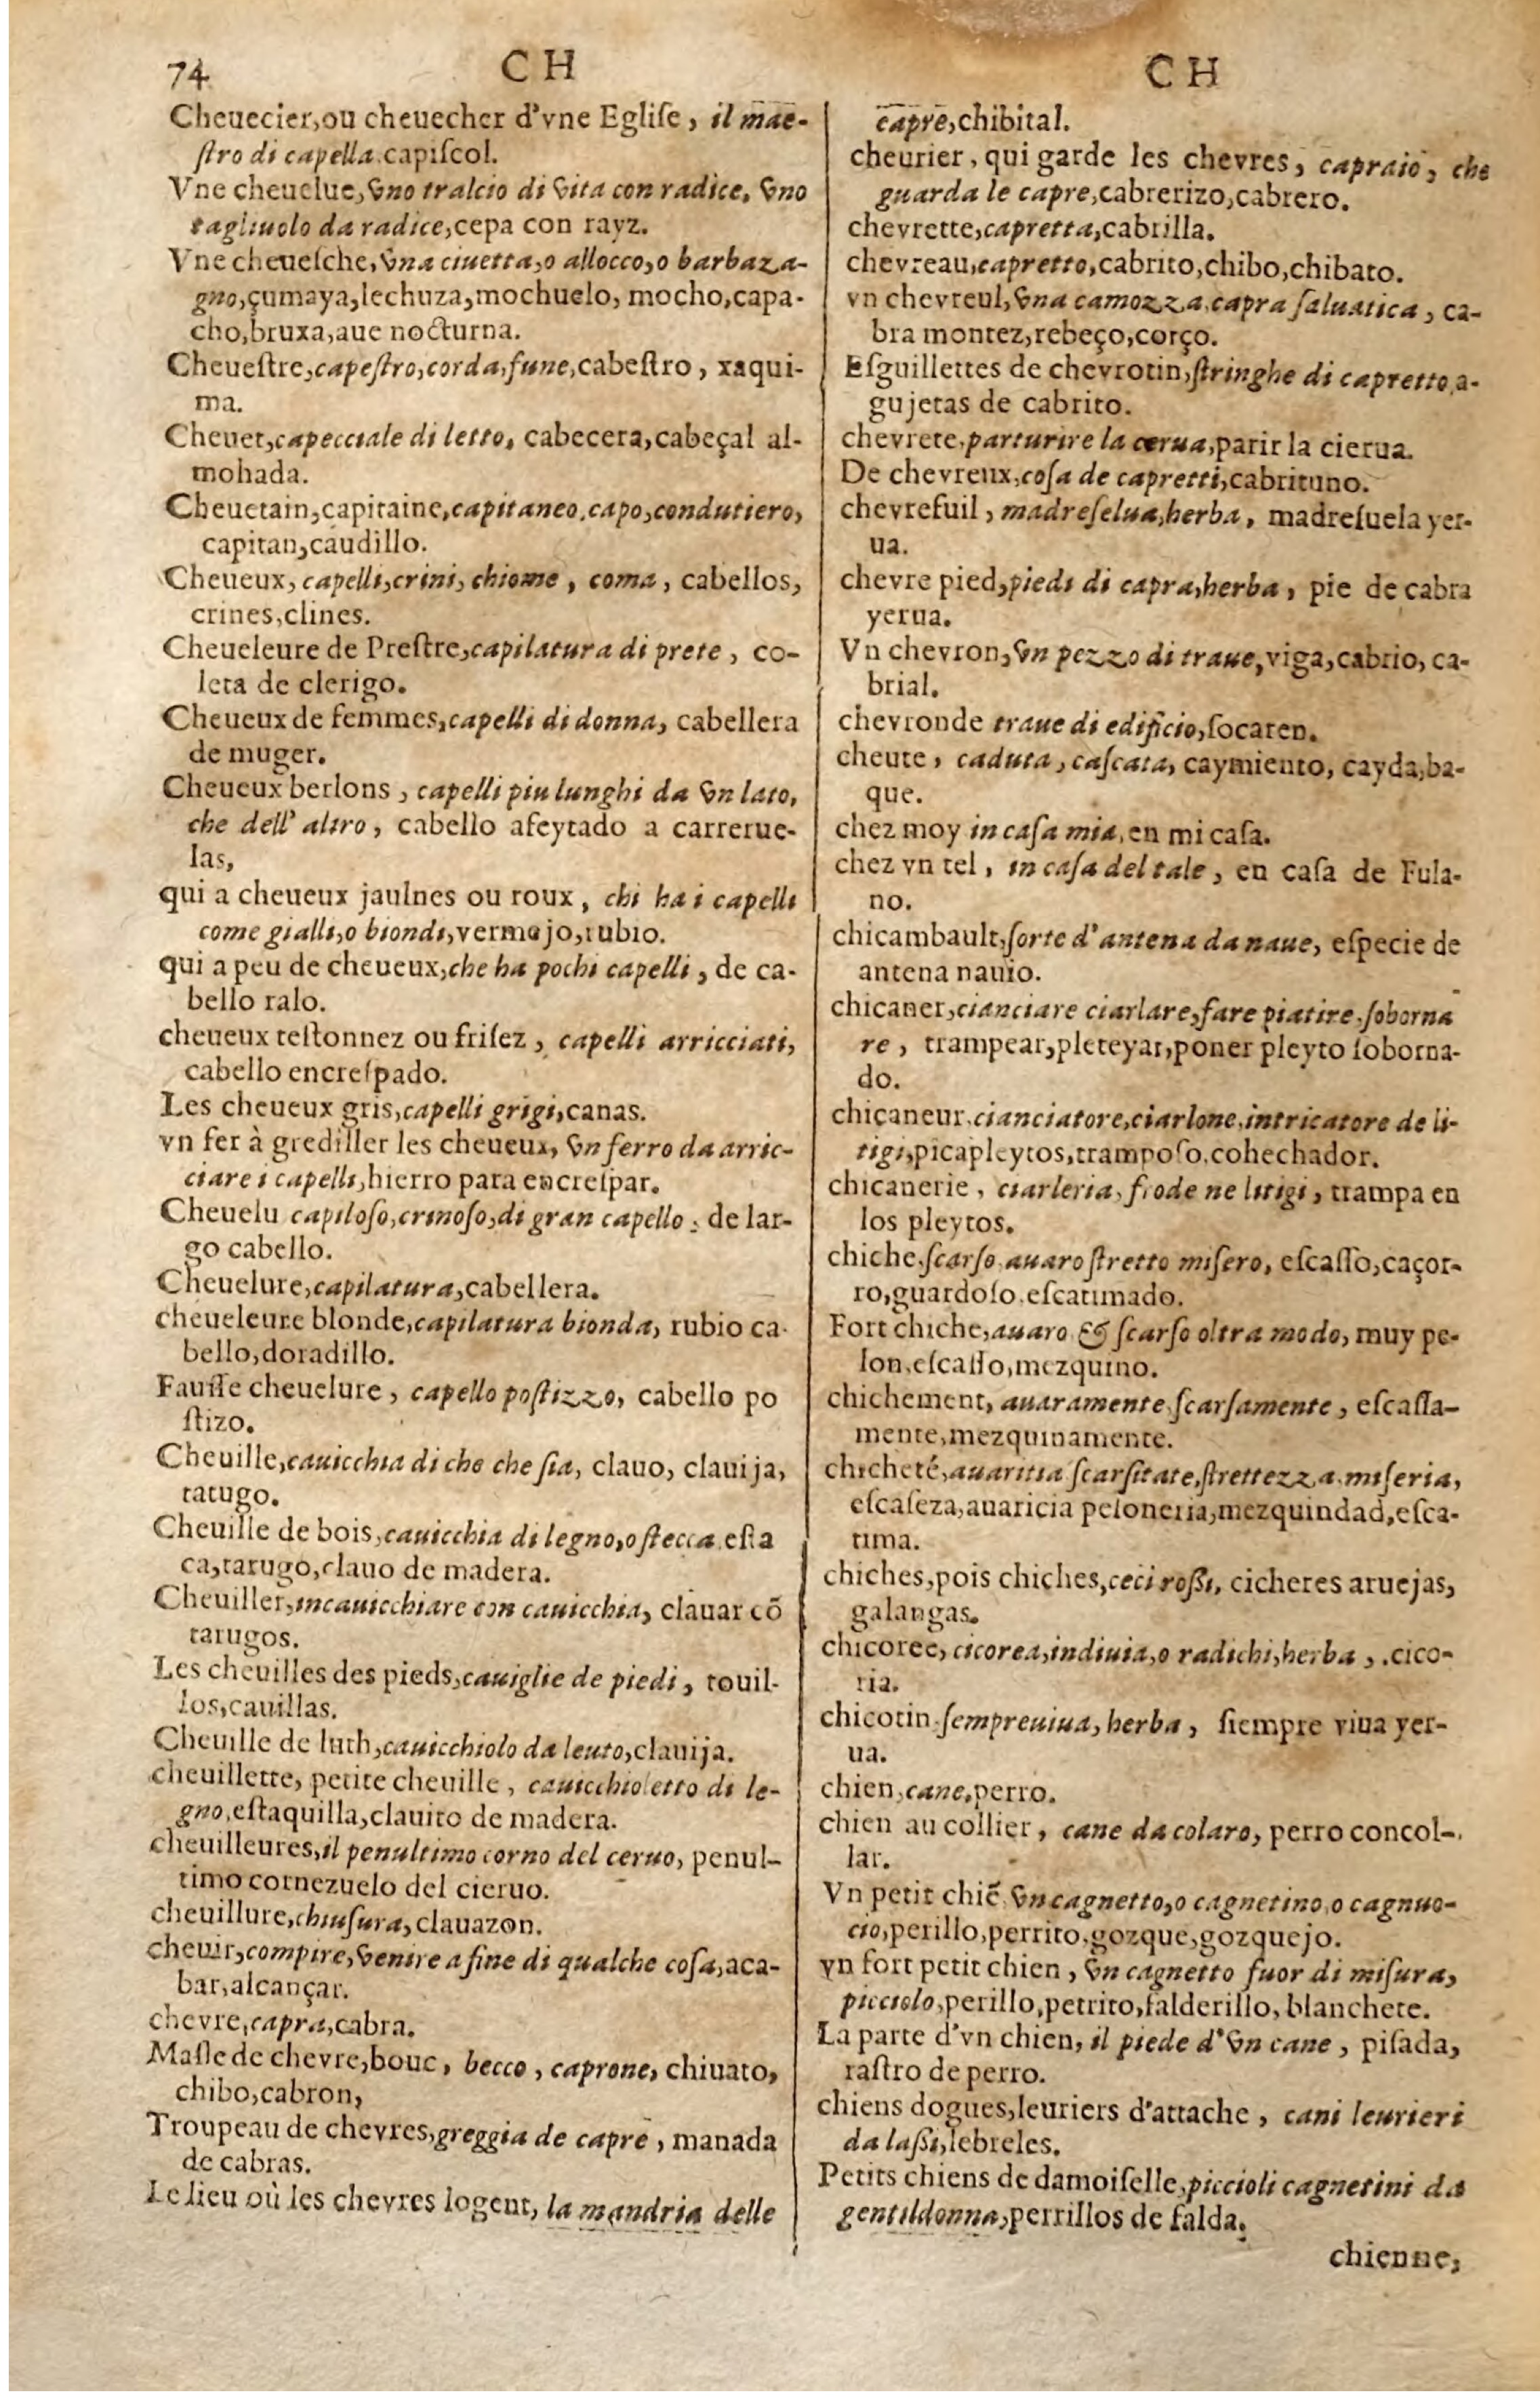 74
CH
CH
Cheuecier,ou cheuecher d'vne Egliſe, il mae-
ſtro di capella.capiſcol.
Vne cheuelue,vno tralcio di vita con radice, vno
tagliuolo da radice,cepa con rayz.
Vne cheueſche,vna ciuetta,o allocco,o barbaza-
gno,çumaya,lechuza,mochuelo, mocho,capa-
cho,bruxa,aue nocturna.
Cheueſtre,capeſtro,corda,fune,cabeſtro, xaqui-
ma.
Cheuet,capecciale di letto, cabecera,cabeçal al-
mohada.
Cheuetain,capitaine,capitaneo,capo,condutiero,
capitan,caudillo.
Cheueux, capelli,crini, chiome, coma, cabellos,
crines,clines.
Cheueleure de Preſtre,capilatura di prete, co-
leta de clerigo.
Cheueux de femmes,capelli di donna, cabellera
de muger.
Cheueux berlons, capelli piu lunghi da vn lato,
che dell' altro, cabello afeytado a carrerue-
las,
qui a cheueux jaulnes ou roux, chi ha i capelli
come gialli,o biondi,vermejo,rubio.
qui a peu de cheueux,che ha pochi capelli, de ca-
bello ralo.
cheueux teſtonnez ou friſez, capelli arricciati,
cabello encreſpado.
Les cheueux gris,capelli grigi,canas.
vn fer à grediller les cheueux, vn ferro da arric-
ciare i capelli,hierro para encreſpar.
Cheuelu capiloſo,crinoſo,di gran capello, de lar-
go cabello.
Cheuelure,capilatura,cabellera.
cheueleure blonde,capilatura bionda, rubio ca-
bello,doradillo.
Fauſſe cheuelure, capello poſtizzo, cabello po
ſtizo.
Cheuille,cauicchia di che che ſia, clauo, clauija,
tarugo.
Cheuille de bois,cauicchia di legno,o ſtecca eſta
ca,tarugo,clauo de madera.
Cheuiller,incauicchiare con cauicchia, clauar cõ
tarugos.
Les cheuilles des pieds,cauiglie de piedi, touil-
los,cauillas.
Cheuille de luth,cauicchiolo da leuto,clauija.
cheuillette, petite cheuille, cauicchioletto di le-
gno,eſtaquilla,clauito de madera.
cheuilleures,il penultimo corno del ceruo, penul-
timo cornezuelo del cieruo.
cheuillure,chiuſura,clauazon.
cheuir,compire,venire a fine di qualche coſa,aca-
bar,alcançar.
chevre,capra,cabra.
Maſle de chevre,bouc, becco, caprone, chiuato,
chibo,cabron,
Troupeau de chevres,greggia de capre, manada
de cabras.
Le lieu où les chevres logent, la mandria delle
capre,chibital.
cheurier, qui garde les chevres, capraio, che
guarda le capre,cabrerizo,cabrero.
chevrette,capretta,cabrilla.
chevreau,capretto,cabrito,chibo,chibato.
vn chevreul,vna camozza,capra ſaluatica, ca-
bra montez,rebeço,corço.
Eſguillettes de chevrotin,ſtringhe di capretto,a-
gujetas de cabrito.
chevrete,parturire la cerua,parir la cierua.
De chevreux,coſa de capretti,cabrituno.
chevrefuil, madreſelua,herba, madreſuela yer-
ua.
chevre pied,piedi di capra,herba, pie de cabra
yerua.
Vn chevron,vn pezzo di traue,viga,cabrio, ca-
brial.
chevronde traue di edificio,ſocaren.
cheute, caduta, caſcata, caymiento, cayda,ba-
que.
chez moy in caſa mia,en mi caſa.
chez vn tel, in caſa del tale, en caſa de Fula-
no.
chicambault,ſorte d'antena da naue, eſpecie de
antena nauio.
chicaner,cianciare ciarlare,fare piatire,ſoborna
re, trampear,pleteyar,poner pleyto ſoborna-
do.
chicaneur,cianciatore,ciarlone,intricatore de li-
tigi,picapleytos,trampoſo,cohechador.
chicanerie, ciarleria, frode ne litigi, trampa en
los pleytos.
chiche,ſcarſo,auaro ſtretto miſero, eſcaſſo,caçor-
ro,guardoſo,eſcatimado.
Fort chiche,auaro & ſcarſo oltra modo, muy pe-
lon,eſcaſſo,mezquino.
chichement, auaramente,ſcarſamente, eſcaſſa-
mente,mezquinamente.
chicheté,auaritia ſcarſitate,ſtrettezza,miſeria,
eſcaſeza,auaricia peloneria,mezquindad,eſca-
tima.
chiches,pois chiches,ceci roſſi, cicheres aruejas,
galangas.
chicoree, cicorea,indiuia,o radichi,herba, .cico-
ria.
chicotin,ſempreuiua, herba, ſiempre viua yer-
ua.
chien,cane,perro.
chien au collier, cane da colaro, perro concol-
lar.
Vn petit chiẽ, vn cagnetto,o cagnetino,o cagnuo-
cio,perillo,perrito,gozque,gozquejo.
vn fort petit chien, vn cagnetto fuor di miſura,
picciolo,perillo,petrito,falderillo, blanchete.
La parte d'vn chien, il piede d'vn cane, piſada,
raſtro de perro.
chiens dogues,leuriers d'attache, cani leurieri
da laſſi,lebreles.
Petits chiens de damoiſelle,piccioli cagnetini da
gentildonna,perrillos de falda.
chienne,